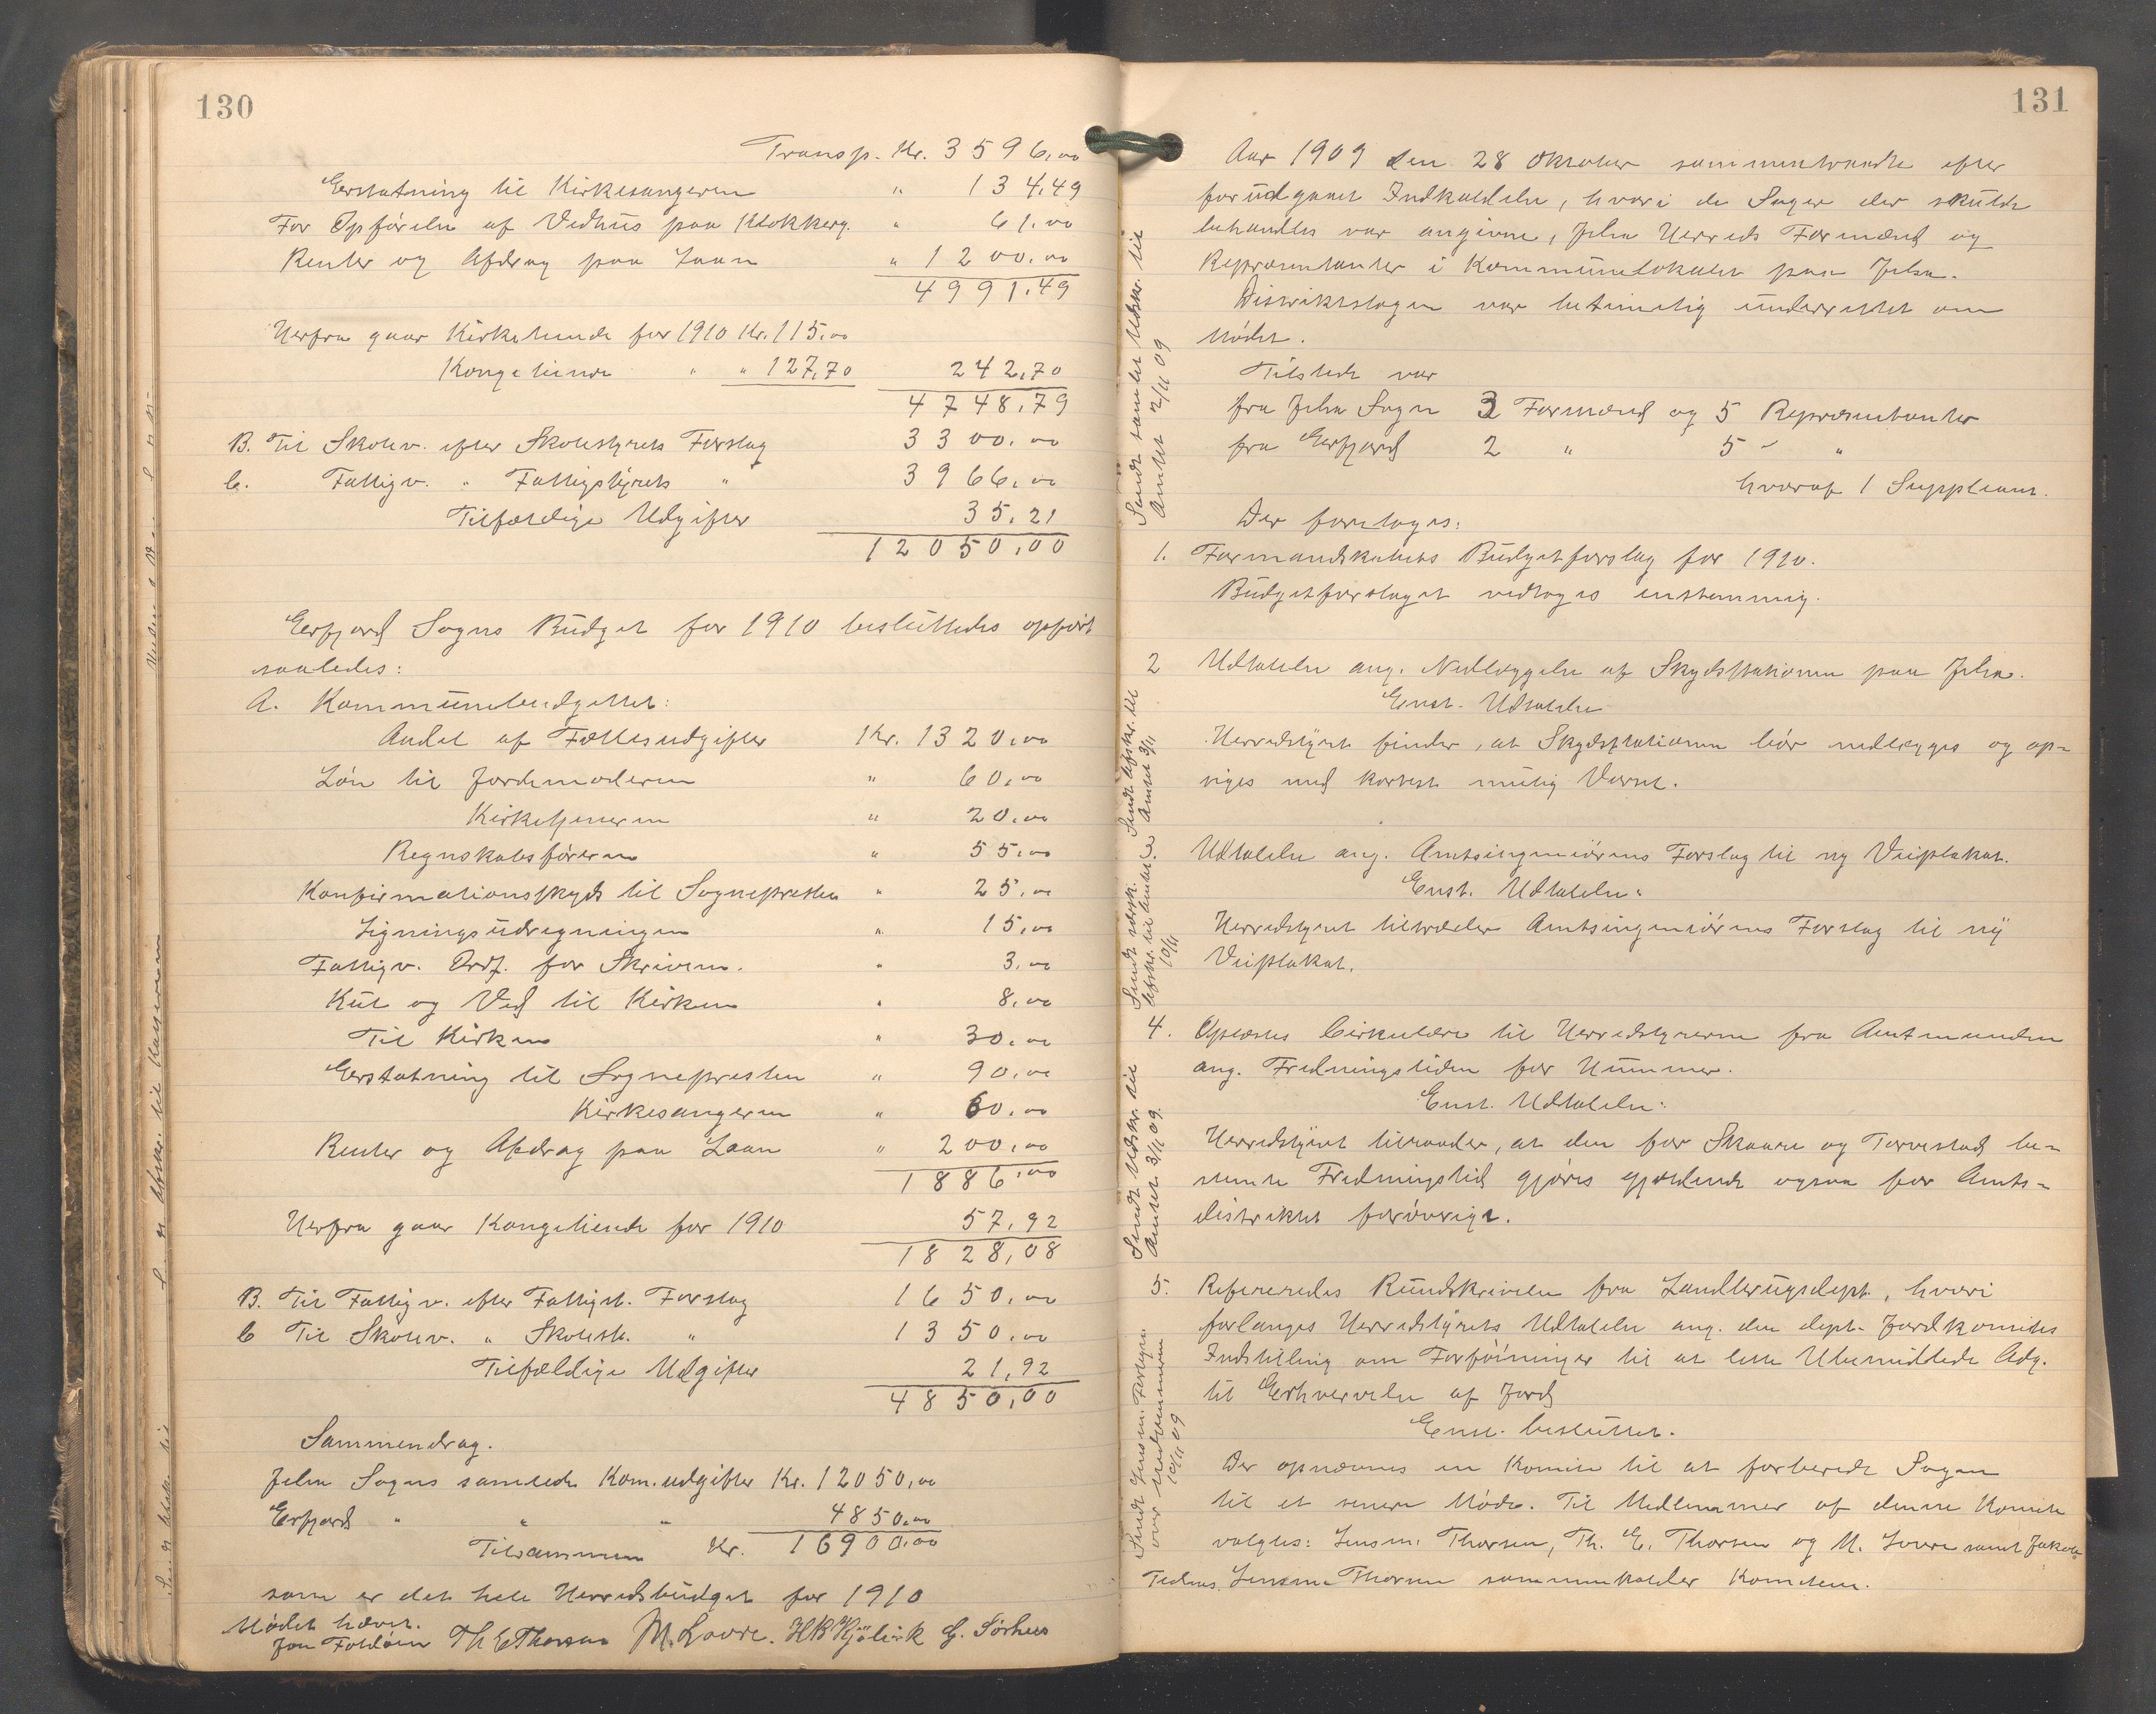 130
Transp. Kr. 3596,00
Erstatning til Kirkesangeren " 134,49
For Opförelse af Vedhus paa Klokkerg. " 61,00
Renter og Afdrag paa Laan " 1200,00
4991,49
Herfra gaar Kirketiende for 1910 Kr. 115,00
Kongetiende " " 127,70 242,70
4748,79
B. Til Skolev. efter Skolestyrets Forslag 3300,00
C. Fattigv. " Fattigstyrets " 3966,00
Tilfældige Udgifter 35,21
12050,00
Erfjord Sogns Budget for 1910 besluttedes opfört
saaledes:
A. Kommunebudgettet:
Andel af Fællesudgifter Kr. 1320,00
Lön til Jordemoderen " 60,00
Kirketjeneren " 20,00
Regnskabsföreren " 55,00
Konfirmationsskyds til Sognepresten " 25,00
Ligningsudregningen " 15,00
Fattigv. Ordf. for Skriveri. " 3,00
Kul og Ved til Kirken " 8,00
Til Kirken " 30,00
Erstatning til Sognepresten " 90,00
Kirkesangeren " 60,00
Renter og Afdrag paa Laan " 200,00
1886,00
Herfra gaar Kongetiende for 1910 57,92
1828,08
B. Til Fattigv. efter Fattigst. Forslag 1650,00
C Til Skolev. " Skolest. " 1350,00
Tilfældige Udgifter 21,92
4850,00
Sammendrag.
Jelsa Sogns samlede Kom.udgifter Kr. 12050,00
Erfjord " " " 4850,00
Tilsammen Kr. 16900,00
som er det hele Herredsbudget for 1910
Mödet hævet.
Jon Foldöen Th E Thorsen M. Lovre. HB Hjölvik G. Sörhus
131
Aar 1909 den 28 Oktober sammentraadte efter
forudgaaet Indkaldelse, hvori de Sager der skulde
behandles var angivne, Jelsa Herreds Formænd og
Repræsentanter i Kommunelokalet paa Jelsa.
Distriktslægen var betimelig underrettet om
Mödet.
Tilstede var
fra Jelsa Sogn 3 Formænd og 5 Repræsentanter
fra Erfjord 2 " 5 " "
hvoraf 1 Suppleant.
Der foretoges:
1. Formandskabets Budgetforslag for 1910.
Budgetforslaget vedtoges enstemmig.
2 Udtalelse ang. Nedlæggelse af Skydsstationen paa Jelsa.
Enst. Udtalelse
Herredstyret finder, at Skydsstationen bör nedlægges og op-
siges med kortest mulig Varsel.
Udtalelse ang. Amtsingeniörens Forslag til ny Veiplakat.
Enst. Udtalelse:
Herredstyret tiltræder Amtsingeniörens Forslag til ny
Veiplakat.
4. Oplæstes Cirkulære til Herredstyrerne fra Amtmanden
ang. Fredningstiden for Hummer.
Enst. Udtalelse:
Herredstyret tilraader, at den for Skaare og Torvestad be-
stemte Fredningstid gjöres gjældende ogsaa for Amts-
distriktet forövrigt.
5. Refereredes Rundskrivelse fra Landbrugsdept., hvori
forlanges Herredstyrets Udtalelse ang. den dept. Jordkomites
Indstilling om Forföininger til at lette Ubemidlede Adg.
til Erhvervelse af Jord
Enst. besluttet.
Der opnævnes en Komite til at forberede Sagen
til et senere Möde. Til Medlemmer af denne Komite
valgtes: Lensm. Thorsen, Th. E. Thorsen og M. Lovre samt Jakob
Tednes. Lensm. Thorsen sammenkalder Komiteen.
Sendt samlet Udskr. til
Amtet 2/11 09
Sendt Afskr. til
Amtet 3/11
Sendt Udskr. til
Amtet 3/11 09.
Sendt Lensm. Fortegn.
over Medlemmerne
10/11 09